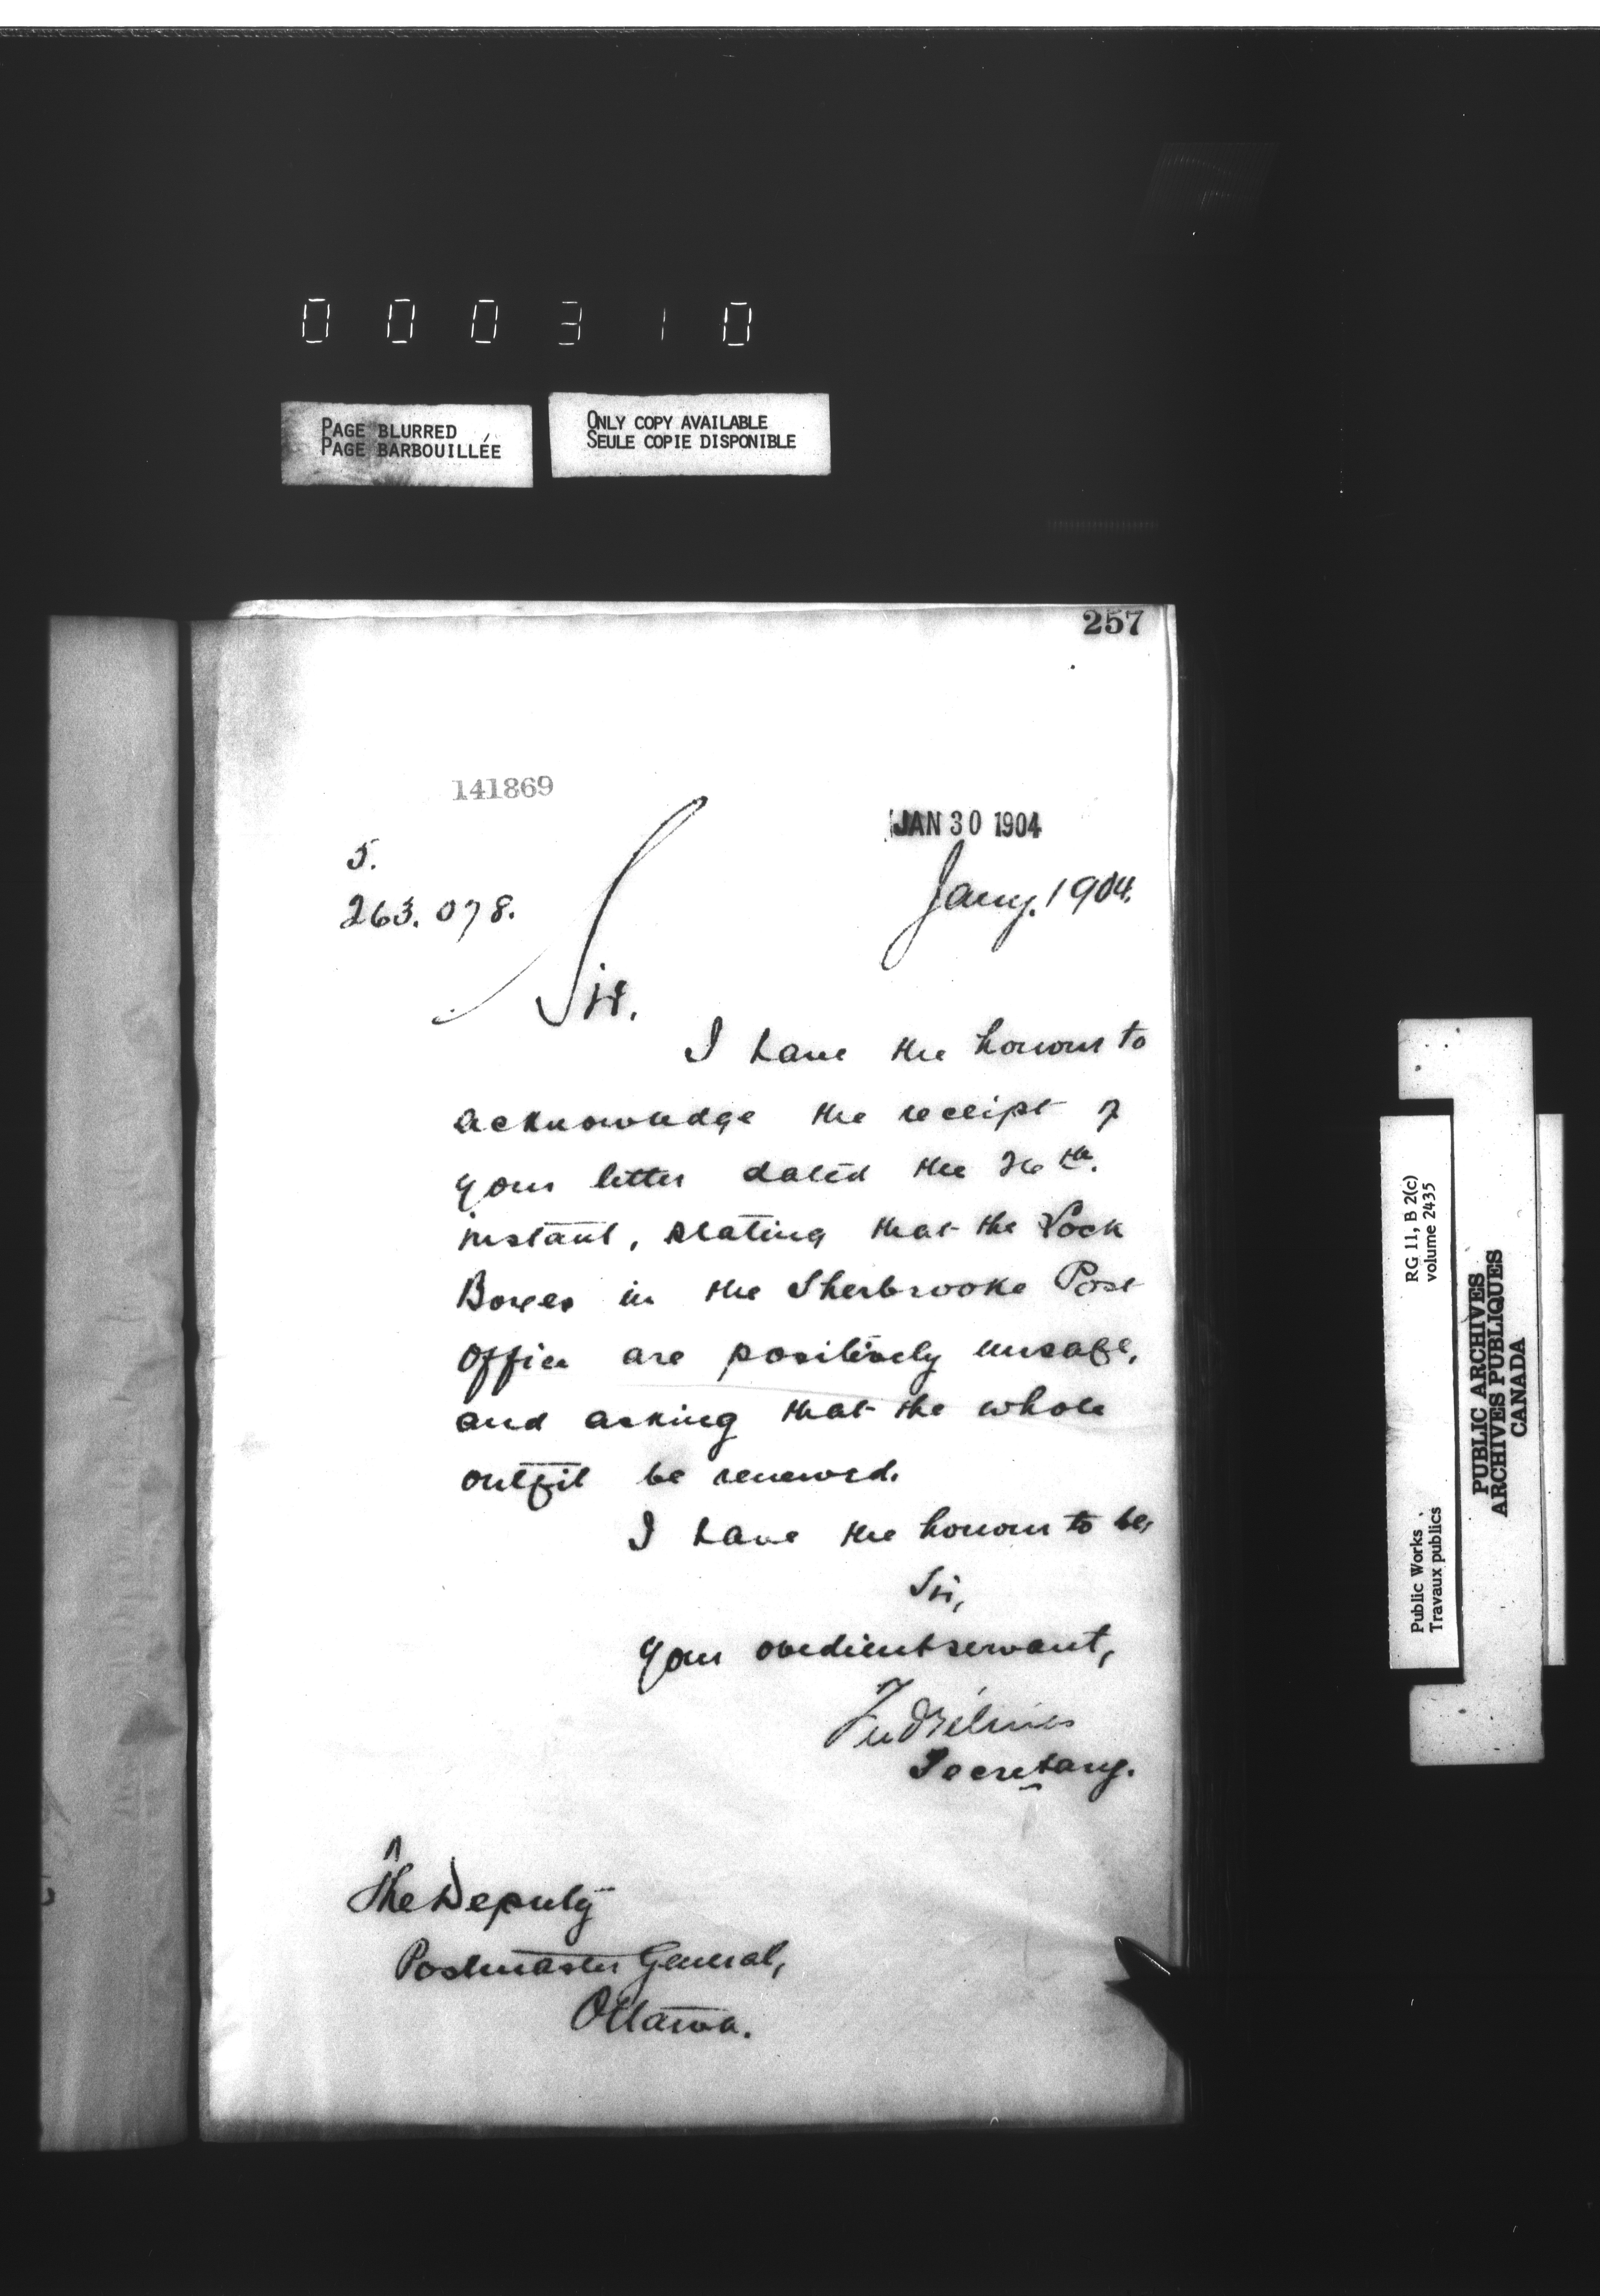 000310
PAGE BLURRED
PAGE BARBOUILLÉE
ONLY COPY AVAILABLE
SEULE COPIE DISPONIBLE
257
141869
JAN 30 1904
5.
263.078.
Jany. 1904.
Sir.
I have the honour to
acknowledge the receipt of
your letter dated the 26th.
instant, stating that the Lock
Boxes in the Sherbrooke Post
Office are positively unsafe,
and asking that the whole
outfit be renewed.
I have the honour to be,
Sir,
Your obedient servant,
Secretary.
The Deputy
Postmaster General,
Ottawa.
RG 11, B 2(c)
volume 2435
Public Works
Travaux publics
PUBLIC ARCHIVES
ARCHIVES PUBLIQUES
CANADA